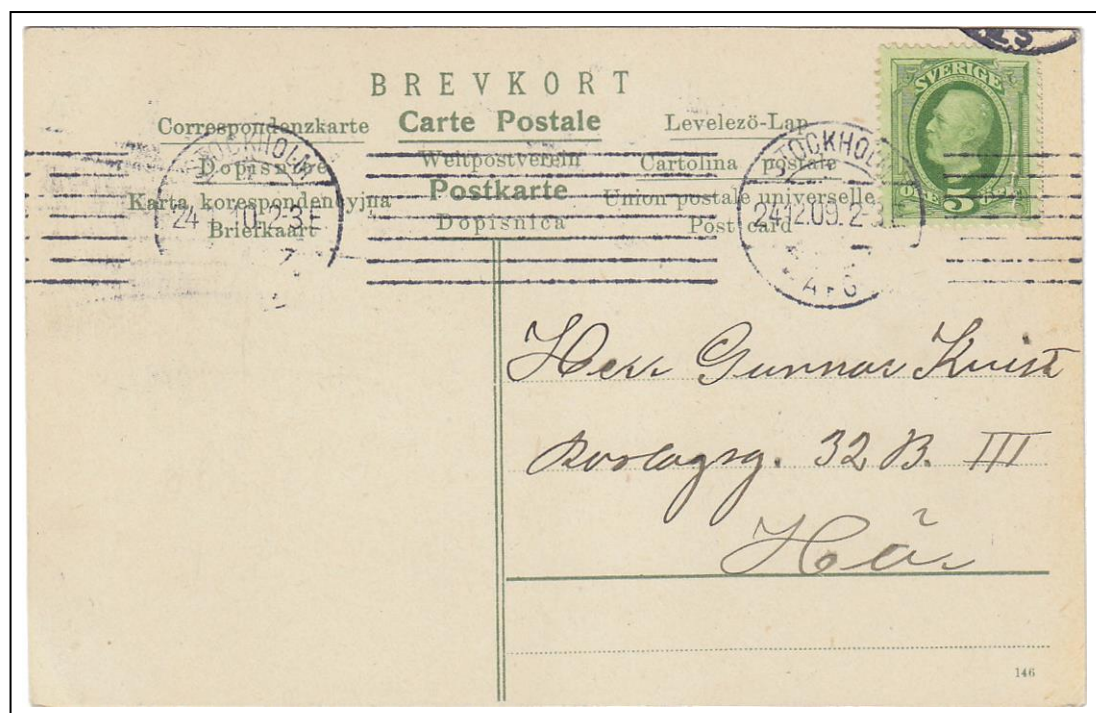 BREVKORT
Correspondenzkarte Carte Postale Levelezö-Lap
Dopisnice Weltpostverein Cartolina postale
Karta korespondencyjna Postkarte Union postale universelle
Briefkaart Dopisnica Post card
STOCKHOLM
24 10 2-3 E
STOCKHOLM
24.12.09. 2-3
SVERIGE
5
Herr Gunnar Kvist
Roslagsg. 32 B. III
Här
146